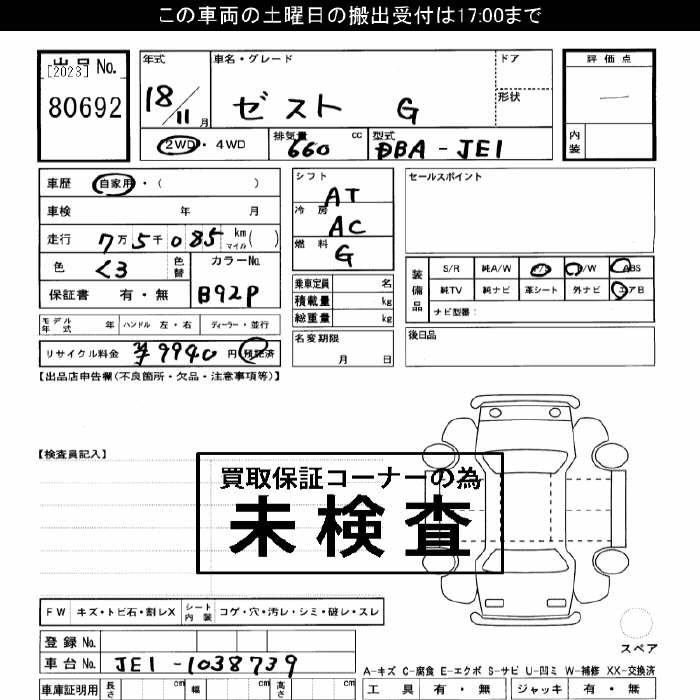 この車両の土曜日の搬出受付は17:00まで
出品No.
[2023]
80692
年式
18/11月
車名・グレード
ゼスト G
ドア
形状
評価点
―
内装
2WD・4WD
排気量
660
cc
型式
DBA-JE1
車歴 自家用・( )
車検 年 月
走行 7万5千085 km マイル ( )
色 くろ
色替
カラーNo.
B92P
保証書 有・無
シフト
AT
冷房
AC
燃料
G
乗車定員 名
積載量 kg
総重量 kg
セールスポイント
装備品
S/R 純A/W P/S P/W ABS
純TV 純ナビ 革シート 外ナビ エアB
ナビ型番:
モデル年式 年 ハンドル 左・右 ディーラー・並行
リサイクル料金 ¥9940 円 預託済
名変期限
月 日
後日品
【出品店申告欄(不良箇所・欠品・注意事項等)】
【検査員記入】
買取保証コーナーの為
未検査
FW キズ・トビ石・割レX
シート内装
コゲ・穴・汚レ・シミ・破レ・スレ
スペア
登録No.
車台No. JE1-1038739
A-キズ C-腐食 E-エクボ S-サビ U-凹ミ W-補修 XX-交換済
車庫証明用 長さ cm 幅 cm 高さ cm
工具 有・無 ジャッキ 有・無